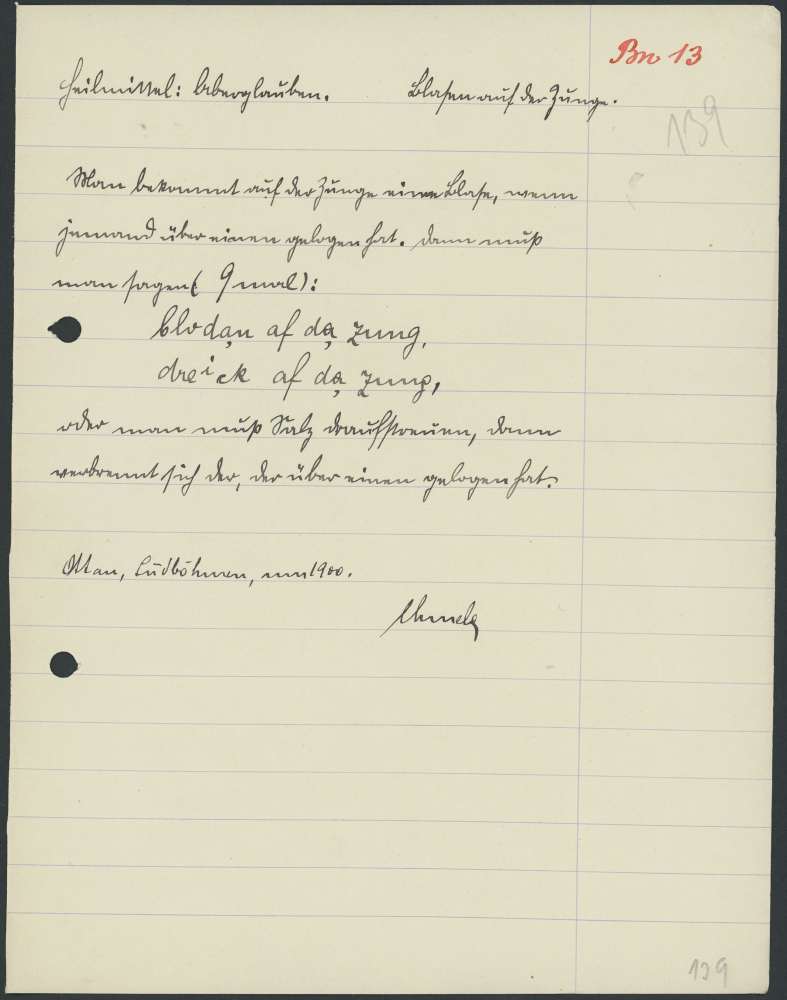 Bn 13
Heilmittel: Aberglauben. Blasen auf der Zunge.
139
Man bekommt auf der Zunge eine Blase, wenn
jemand über einen gelogen hat. Dann muß
man sagen (9 mal):
blodạn af dạ zung,
dreick af dạ zung,
oder man muß Salz draufstreuen, dann
verbrennt sich der, der über einen gelogen hat.
Ottau, Südböhmen, um 1900.
139